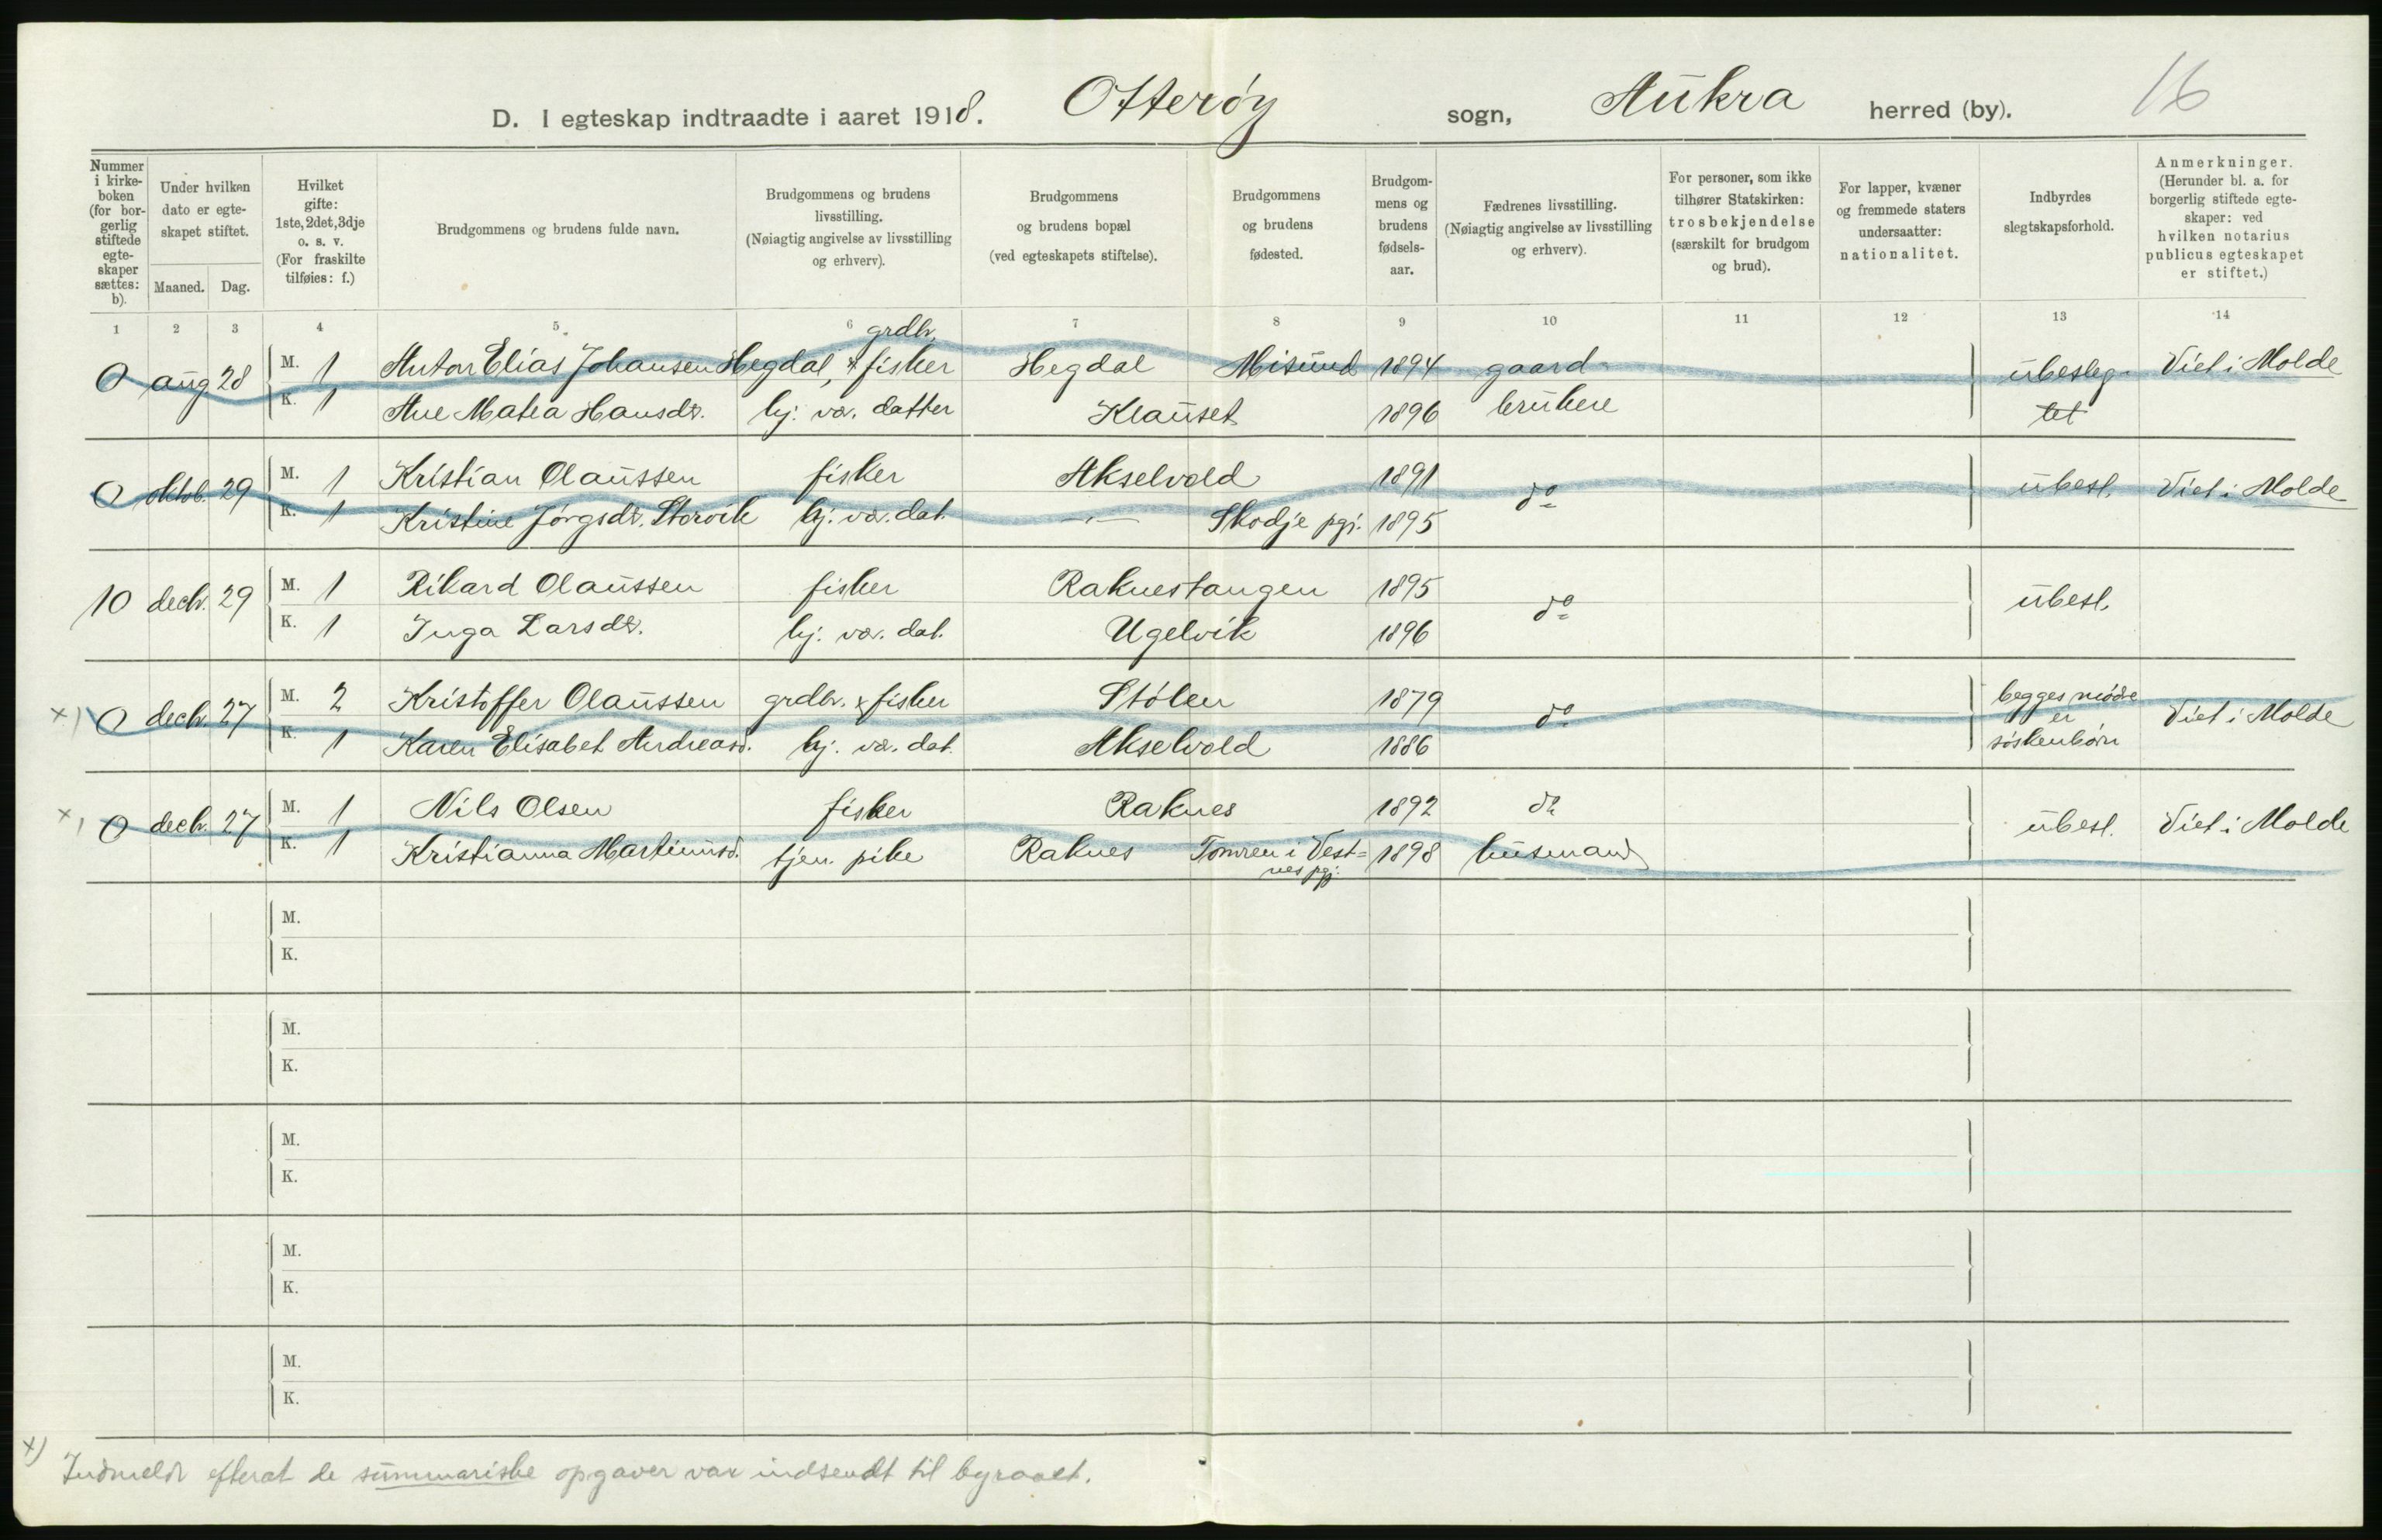 D. I egteskap indtraadte i aaret 1918. Otterøy sogn, Aukra herred (by). 16
Nummer i kirke-boken (for bor-gerlig stiftede egte-skaper sættes: b).
Under hvilken dato er egte-skapet stiftet.
Maaned. Dag.
Hvilket gifte: 1ste, 2det, 3dje o. s. v. (For fraskilte tilføies: f.)
Brudgommens og brudens fulde navn.
Brudgommens og brudens livsstilling. (Nøiagtig angivelse av livsstilling og erhverv).
Brudgommens og brudens bopæl (ved egteskapets stiftelse).
Brudgommens og brudens fødested.
Brudgom-mens og brudens fødsels-aar.
Fædrenes livsstilling. (Nøiagtig angivelse av livsstilling og erhverv).
For personer, som ikke tilhører Statskirken: trosbekjendelse (særskilt for brudgom og brud).
For lapper, kvæner og fremmede staters undersaatter: nationalitet.
Indbyrdes slegtskapsforhold.
Anmerkninger. (Herunder bl. a. for borgerlig stiftede egte-skaper: ved hvilken notarius publicus egteskapet er stiftet.)
1 2 3 4 5 6 7 8 9 10 11 12 13 14
grdbr.
0 aug. 28 M. 1 Anton Elias Johansen Hegdal, & fisker Hegdal Misund 1894 gaard ubesleg- Viet i Molde
K. 1 Ane Matea Hansdr. hj. væ. datter Klauset 1896 brukere tet
0 oktob. 29 M. 1 Kristian Olaussen fisker Akselvold 1891 do ubesl. Viet i Molde
K. 1 Kristine Jørgsdr. Storvik hj. væ. dat. —"— Skodje pgj. 1895
10 decbr. 29 M. 1 Rikard Olaussen fisker Raknestangen 1895 do ubesl.
K. 1 Inga Larsdr. hj. væ. dat. Ugelvik 1896
x) 0 decbr. 27 M. 2 Kristoffer Olaussen grdbr. & fisker Stølen 1879 do begges mødre er Viet i Molde
K. 1 Karen Elisabet Andreasd. hj. væ. dat. Akselvold 1886 søskenbørn
x) 0 decbr. 27 M. 1 Nils Olsen fisker Raknes 1892 do ubesl. Viet i Molde
K. 1 Kristianna Martinusd. tjen. pike Raknes Tomren i Vest= 1898 husmand
nes pgj.
M.
K.
M.
K.
M.
K.
M.
K.
M.
K.
x) Indmeldt efterat de summariske opgaver var indsendt til byraaet.